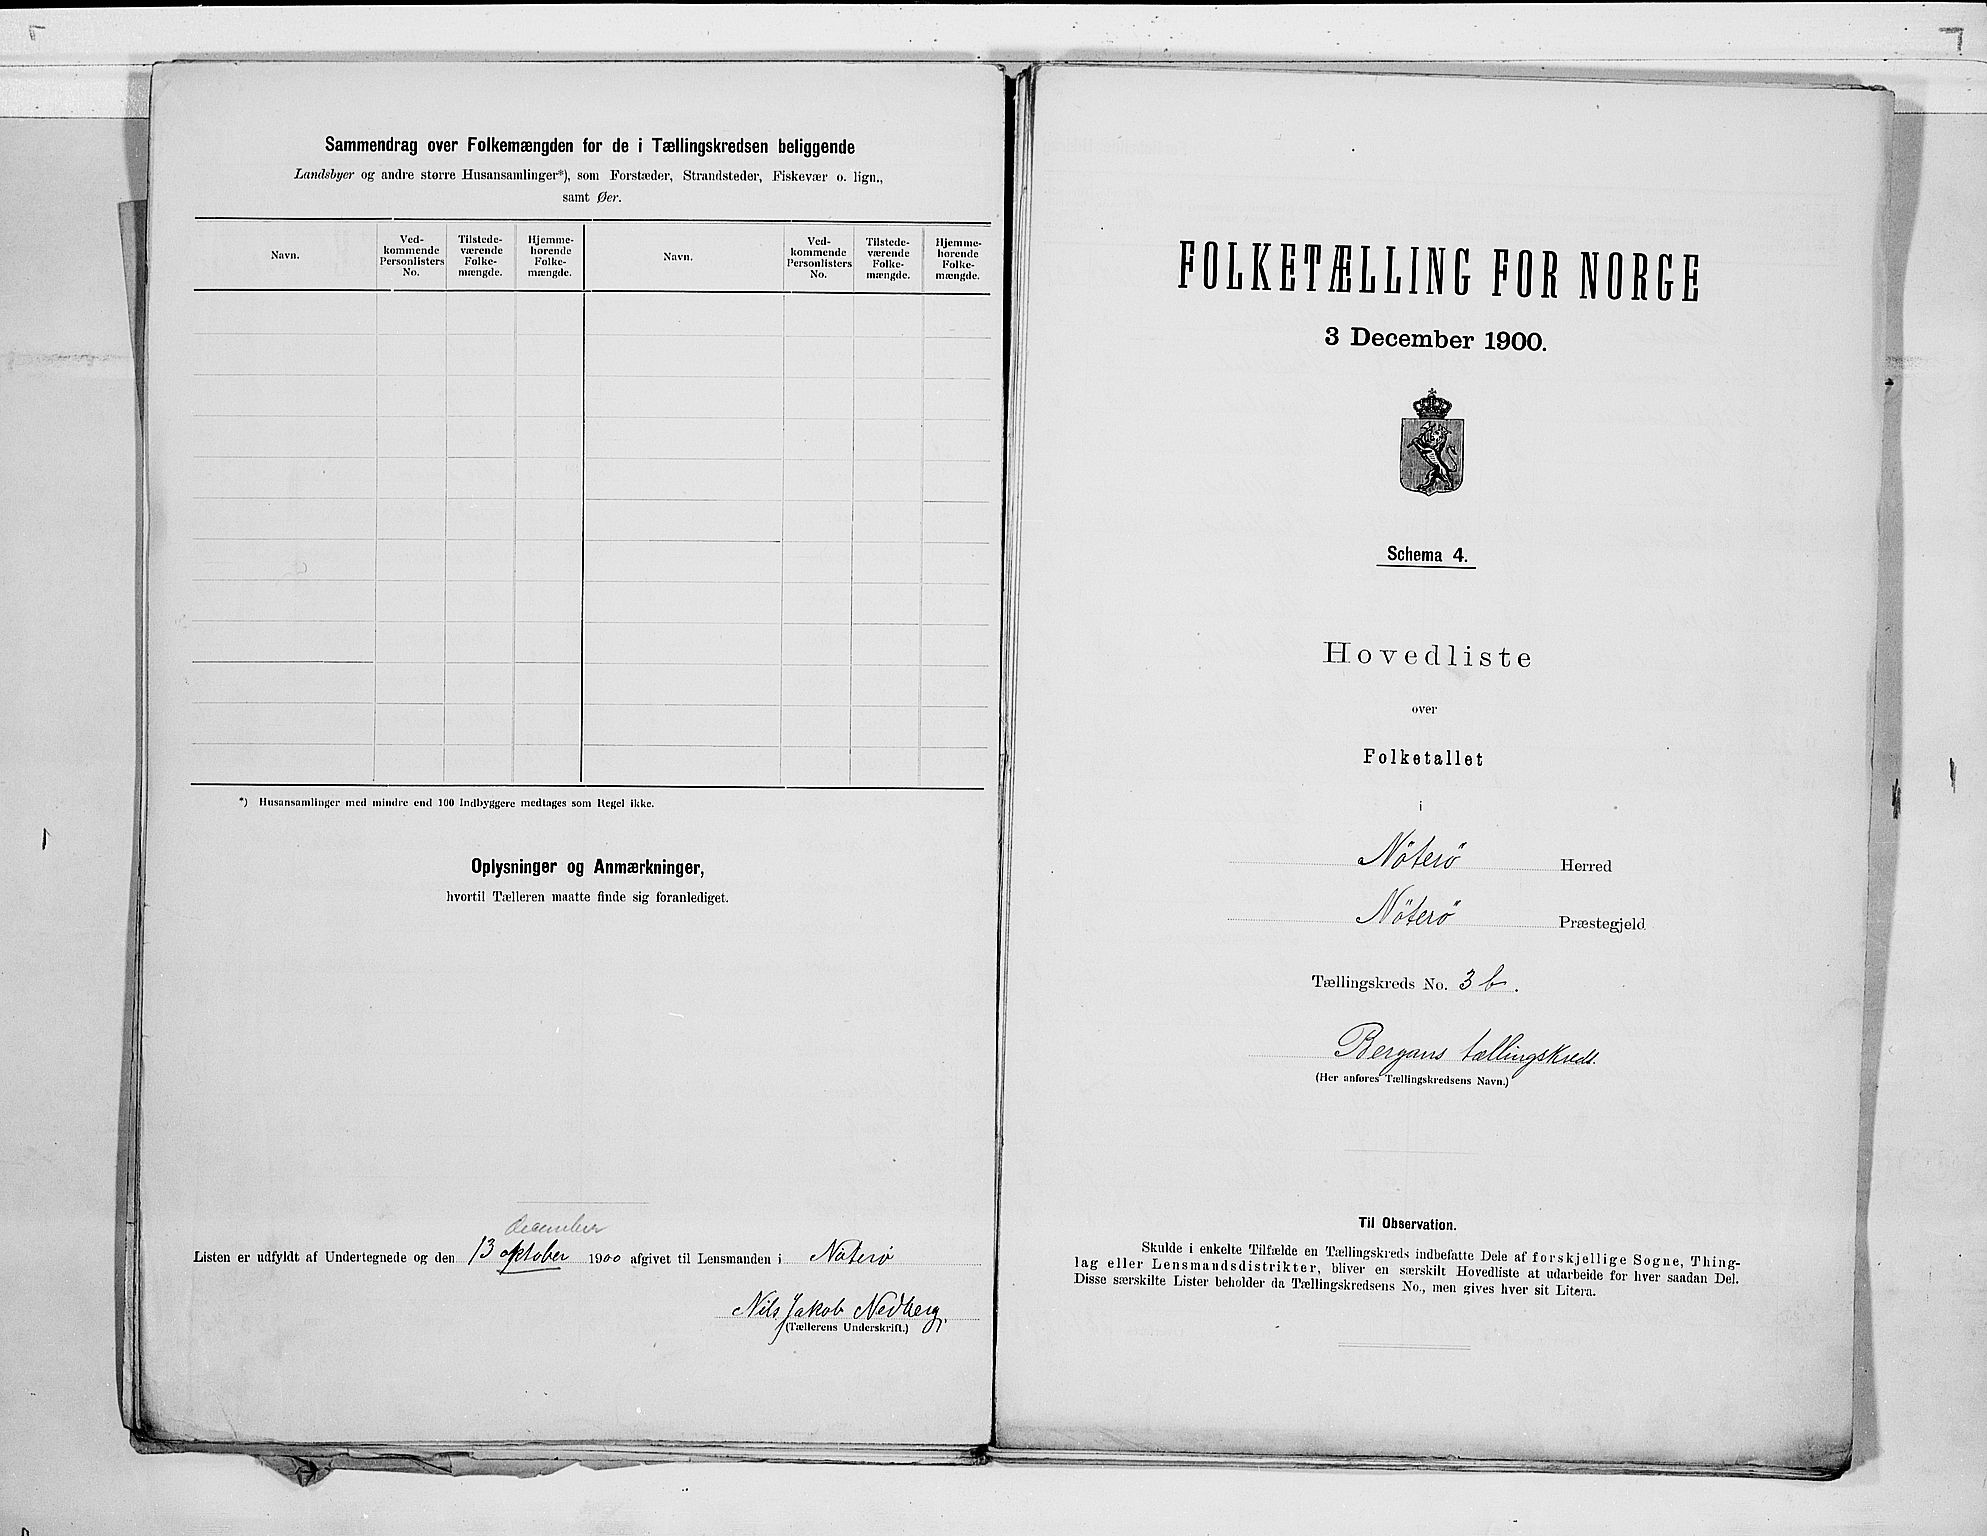 Sammendrag over Folkemængden for de i Tællingskredsen beliggende
Landsbyer og andre større Husansamlinger*), som Forstæder, Strandsteder, Fiskevær o. lign.,
samt Øer.
Navn.
Ved-
kommende
Personlisters
No.
Tilstede-
værende
Folke-
mængde.
Hjemme-
hørende
Folke-
mængde.
Navn.
Ved-
kommende
Personlisters
No.
Tilstede-
værende
Folke-
mængde.
Hjemme-
hørende
Folke-
mængde.
*) Husansamlinger med mindre end 100 Indbyggere medtages som Regel ikke.
Oplysninger og Anmærkninger,
hvortil Tælleren maatte finde sig foranlediget.
december
Listen er udfyldt af Undertegnede og den 13 oktober 1900 afgivet til Lensmanden i Nøterø
Nils Jakob Nedberg.
(Tællerens Underskrift.)
FOLKETÆLLING FOR NORGE
3 December 1900.
Schema 4.
Hovedliste
over
Folketallet
i
Nöterö Herred
Nöterö Præstegjeld
Tællingskreds No. 3 b.
Bergans tællingskreds.
(Her anføres Tællingskredsens Navn.)
Til Observation.
Skulde i enkelte Tilfælde en Tællingskreds indbefatte Dele af forskjellige Sogne, Thing-
lag eller Lensmandsdistrikter, bliver en særskilt Hovedliste at udarbeide for hver saadan Del.
Disse særskilte Lister beholder da Tællingskredsens No., men gives hver sit Litera.